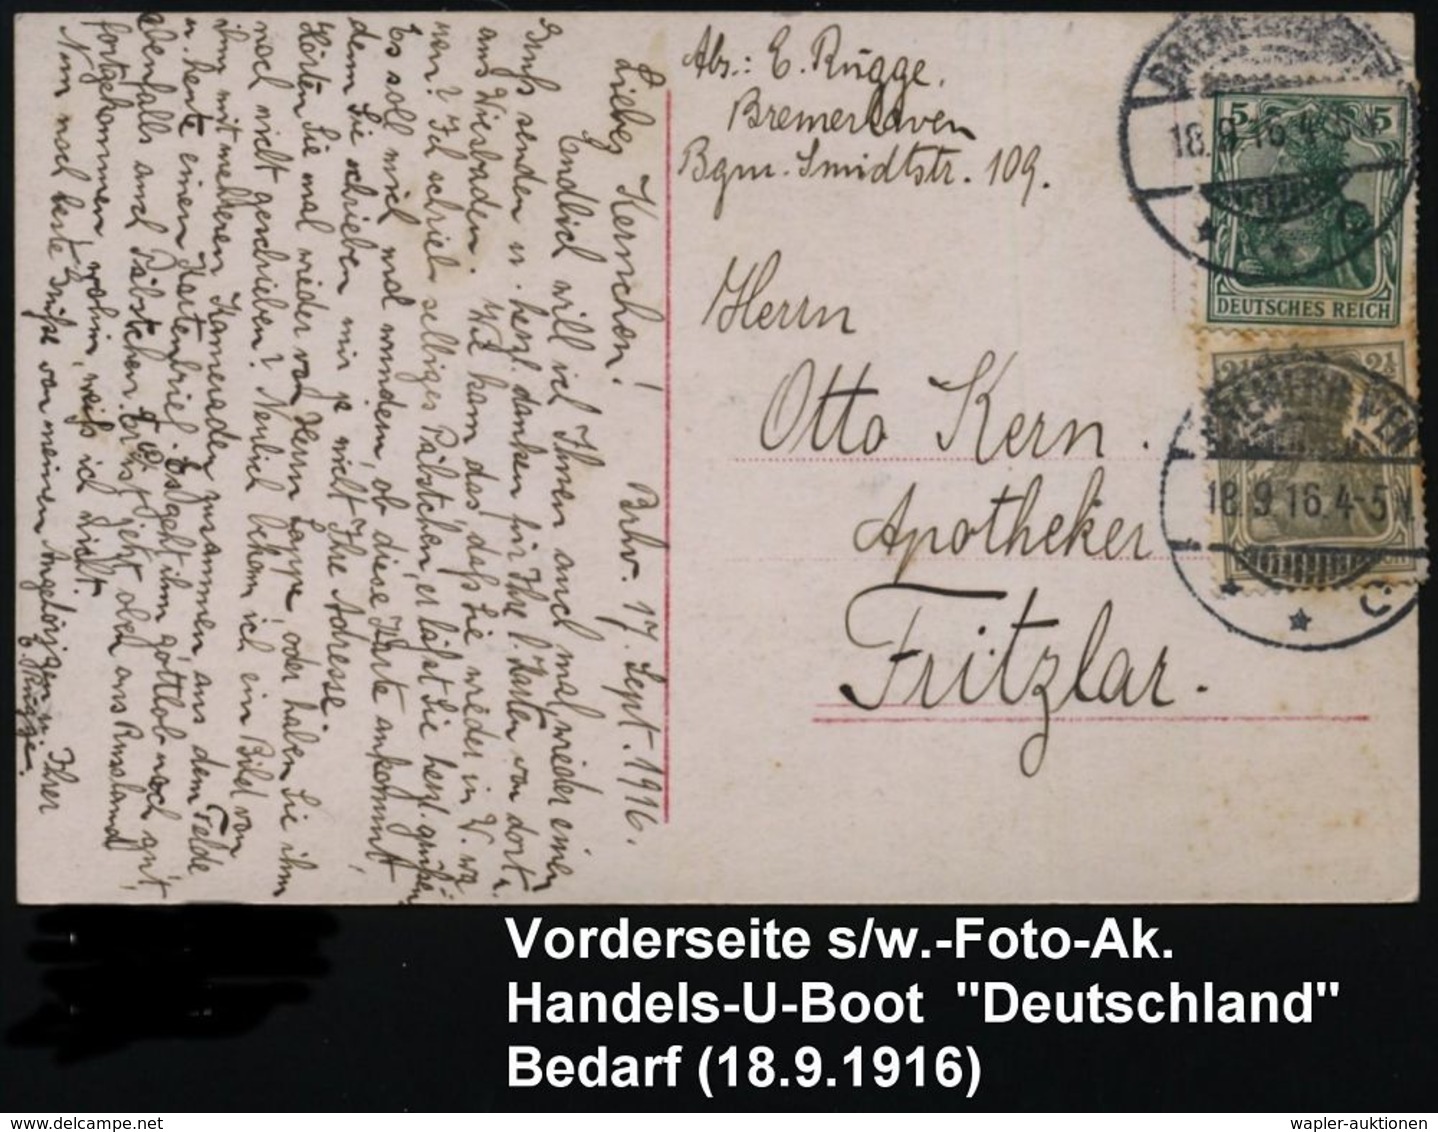 Abs.: E. Rügge.
Bremerhaven
Bgm. Smidtstr. 109.
Herrn
Otto Kern.
Apotheker
Fritzlar.
5 5
DEUTSCHES REICH
18.9.16.4-5 N
C
2½ 2½
BREMERHAVEN
18.9.16.4-5 N
C
Brhv. 17. Sept. 1916.
Lieber Kernchen!
Endlich will ich Ihnen auch mal wieder einen
Gruß senden u. herzl. danken für Ihre l. Karten von dort u.
aus Wiesbaden. Wie kam das, daß Sie wieder in W. wa-
ren? Ich schrieb selbiges Päbstchen, er läßt Sie herzl. grüßen.
Es soll mich mal wundern, ob diese Karte ankommt,
denn Sie schrieben mir ja nicht Ihre Adresse.
Hörten Sie mal wieder von Herrn Lappe, oder haben Sie ihm
noch nicht geschrieben? Neulich bekam ich ein Bild von
ihm mit mehreren Kameraden zusammen, aus dem Felde
u. heute einen Kartenbrief. Es geht ihm gottlob noch gut,
ebenfalls auch Päbstchen. Er ist jetzt aber aus Russland
fortgekommen, wohin, weiß ich nicht.
Nun noch beste Grüße von meinen Angehörigen u. Ihrer
E. Rügge.
Vorderseite s/w.-Foto-Ak.
Handels-U-Boot "Deutschland"
Bedarf (18.9.1916)
wapler-auktionen